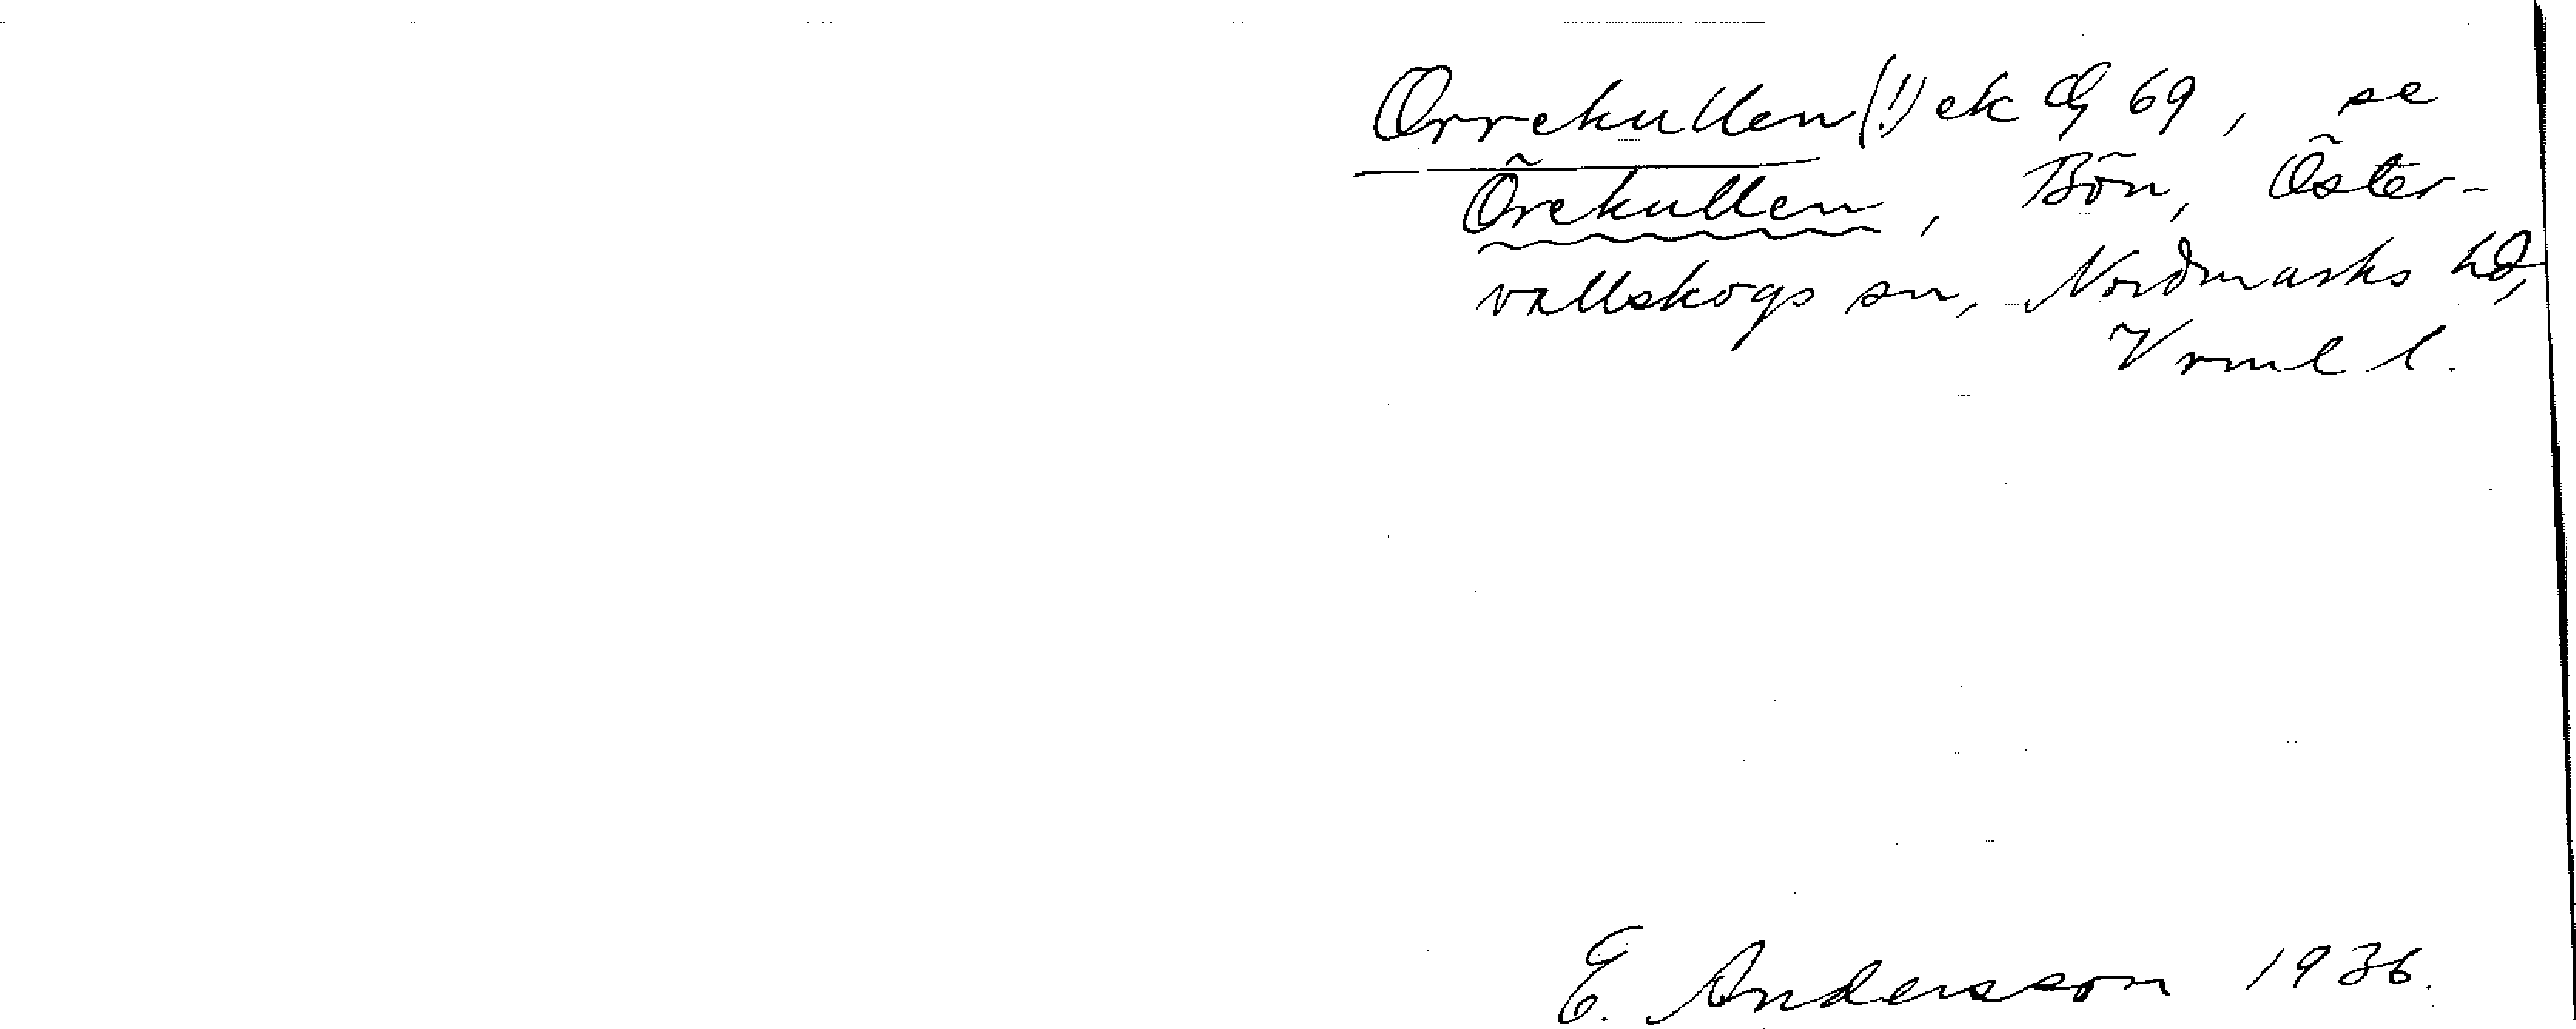 Orrekullen (!) ek 69, se
Örekullen, Bön, Öster-
vallskogs sn, Nordmarks hd,
Vrml l.
E. Andersson 1936.